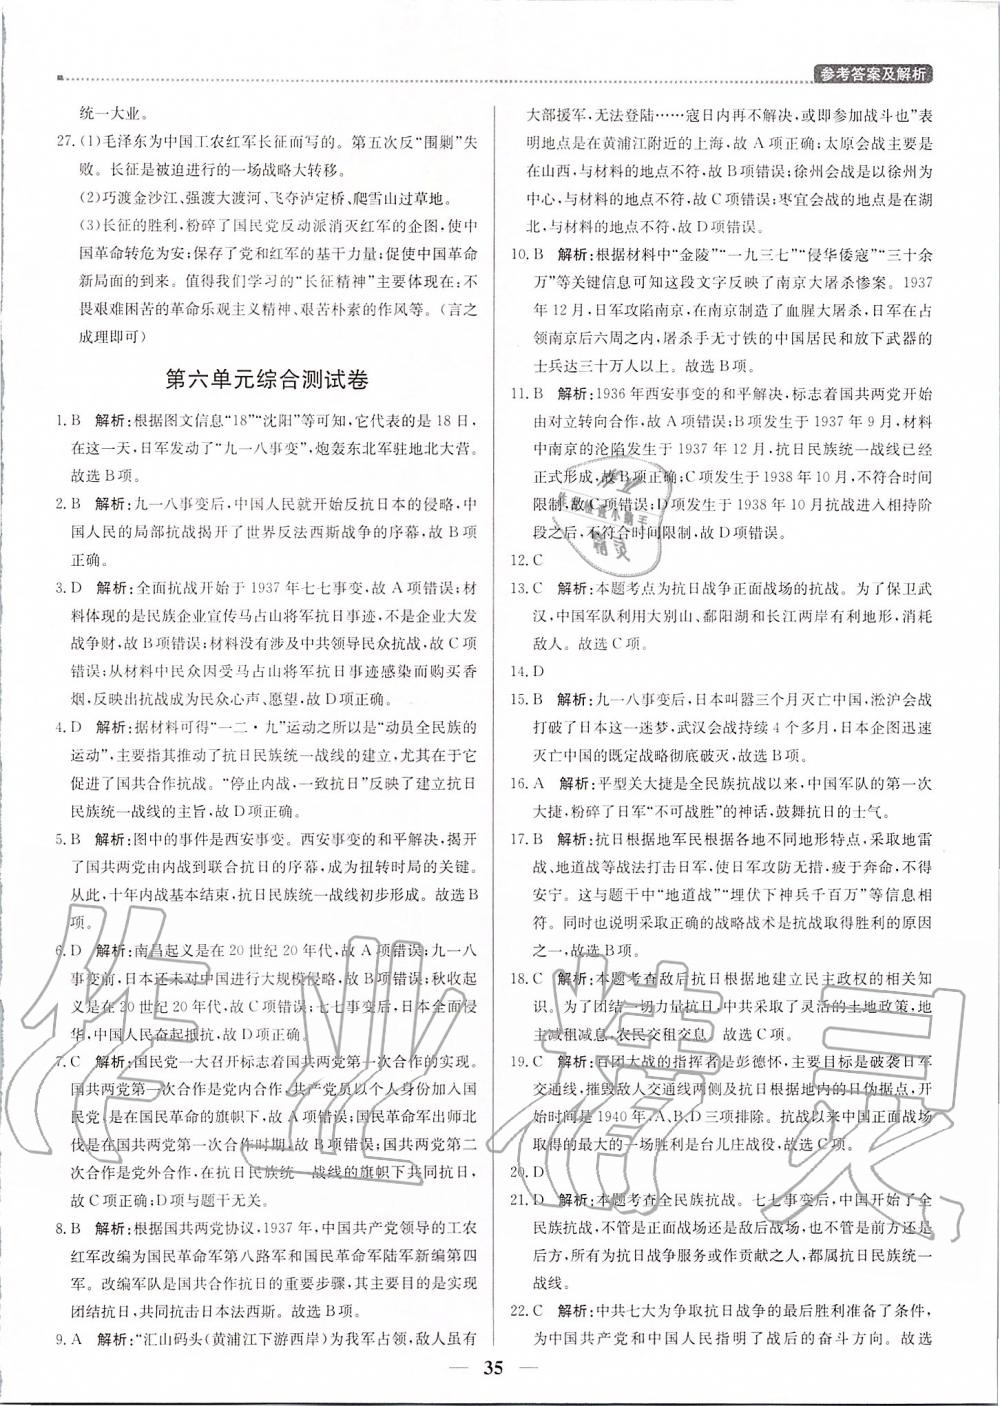 参考答案及解析
统一大业。
27. (1)毛泽东为中国工农红军长征而写的。第五次反“围剿”失
败。长征是被迫进行的一场战略大转移。
(2)巧渡金沙江、强渡大渡河、飞夺泸定桥、爬雪山过草地。
(3)长征的胜利,粉碎了国民党反动派消灭红军的企图,使中
国革命转危为安;保存了党和红军的基干力量;促使中国革命
新局面的到来。值得我们学习的“长征精神”主要体现在:不
畏艰难困苦的革命乐观主义精神、艰苦朴素的作风等。(言之
成理即可)
第六单元综合测试卷
1. B 解析:根据图文信息“18”“沈阳”等可知,它代表的是18日,
在这一天,日军发动了“九一八事变”,炮轰东北军驻地北大营。
故选B项。
2. B 解析:九一八事变后,中国人民就开始反抗日本的侵略,中
国人民的局部抗战揭开了世界反法西斯战争的序幕,故B项
正确。
3. D 解析:全面抗战开始于1937年七七事变,故A项错误;材
料体现的是民族企业宣传马占山将军抗日事迹,不是企业大发
战争财,故B项错误;材料没有涉及中共领导民众抗战,故C项
错误;从材料中民众因受马占山将军抗日事迹感染而购买香
烟,反映出抗战成为民众心声、愿望,故D项正确。
4. D 解析:据材料可得“一二·九”运动之所以是“动员全民族的
运动”,主要指其推动了抗日民族统一战线的建立,尤其在于它
促进了国共合作抗战。“停止内战,一致抗日”反映了建立抗日
民族统一战线的主旨,故D项正确。
5. B 解析:图中的事件是西安事变。西安事变的和平解决,揭开
了国共两党由内战到联合抗日的序幕,成为扭转时局的关键。
从此,十年内战基本结束,抗日民族统一战线初步形成。故选B
项。
6. D 解析:南昌起义是在20世纪20年代,故A项错误;九一八
事变前,日本还未对中国进行大规模侵略,故B项错误;秋收起
义是在20世纪20年代,故C项错误;七七事变后,日本全面侵
华,中国人民奋起抵抗,故D项正确。
7. C 解析:国民党一大召开标志着国共两党第一次合作的实现。
国共两党第一次合作是党内合作,共产党员以个人身份加入国
民党,是在国民革命的旗帜下,故A项错误;国民革命军出师北
伐是在国共两党第一次合作时期,故B项错误;国共两党第二
次合作是党外合作,在抗日民族统一战线的旗帜下共同抗日,
故C项正确;D项与题干无关。
8. B 解析:根据国共两党协议,1937年,中国共产党领导的工农
红军改编为国民革命军第八路军和国民革命军陆军新编第四
军。改编军队是国共合作抗日的重要步骤,其主要目的是实现
团结抗日,共同抗击日本法西斯。故选B项。
9. A 解析:“汇山码头(黄浦江下游西岸)为我军占领,敌人虽有
大部援军,无法登陆……寇日内再不解决,或即参加战斗也”表
明地点是在黄浦江附近的上海,故A项正确;太原会战主要是
在山西,与材料的地点不符,故B项错误;徐州会战是以徐州为
中心,与材料的地点不符,故C项错误;枣宜会战的地点是在湖
北,与材料的地点不符,故D项错误。
10. B 解析:根据材料中“金陵”“一九三七”“侵华倭寇”“三十余
万”等关键信息可知这段文字反映了南京大屠杀惨案。1937
年12月,日军攻陷南京,在南京制造了血腥大屠杀,日军在占
领南京后六周之内,屠杀手无寸铁的中国居民和放下武器的
士兵达三十万人以上。故选B项。
11. B 解析:1936年西安事变的和平解决,标志着国共两党开始
由对立转向合作,故A项错误;B项发生于1937年9月,材料
中南京的沦陷发生于1937年12月,抗日民族统一战线已经
正式形成,故B项正确;C项发生于1938年10月,不符合时间
限制,故C项错误;D项发生于1938年10月抗战进入相持阶
段之后,不符合时间限制,故D项错误。
12. C
13. C 解析:本题考点为抗日战争正面战场的抗战。为了保卫武
汉,中国军队利用大别山、鄱阳湖和长江两岸有利地形,消耗
敌人。故选C项。
14. D
15. B 解析:九一八事变后,日本叫嚣三个月灭亡中国,淞沪会战
打破了日本这一迷梦,武汉会战持续4个多月,日本企图迅速
灭亡中国的既定战略彻底破灭,故选B项。
16. A 解析:平型关大捷是全民族抗战以来,中国军队的第一次
大捷,粉碎了日军“不可战胜”的神话,鼓舞抗日的士气。
17. B 解析:抗日根据地军民根据各地不同地形特点,采取地雷
战、地道战等战法打击日军,使日军攻防无措,疲于奔命,不得
安宁。这与题干中“地道战”“埋伏下神兵千百万”等信息相
符。同时也说明采取正确的战略战术是抗战取得胜利的原因
之一,故选B项。
18. C 解析:本题考查敌后抗日根据地建立民主政权的相关知
识。为了团结一切力量抗日,中共采取了灵活的土地政策,地
主减租减息,农民交租交息。故选C项。
19. C 解析:百团大战的指挥者是彭德怀,主要目标是破袭日军
交通线,摧毁敌人交通线两侧及抗日根据地内的日伪据点,开
始时间是1940年,A、B、D三项排除。抗战以来中国正面战场
取得的最大的一场胜利是台儿庄战役,故选C项。
20. D
21. C 解析:本题考查全民族抗战。七七事变后,中国开始了全
民族抗战,不管是正面战场还是敌后战场,也不管是前方还是
后方,所有为抗日战争服务或作贡献之人,都属抗日民族统一
战线。
22. C 解析:中共七大为争取抗日战争的最后胜利准备了条件,
为中国共产党和中国人民指明了战后的奋斗方向。故选
35
作业精灵